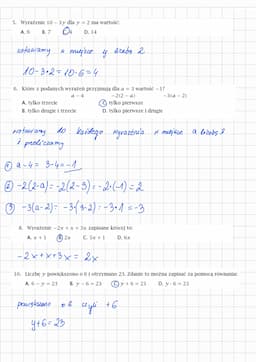 5. Wyrażenie 10 − 3y dla y = 2 ma wartość:
A. 6 B. 7 C. 4 D. 14
wstawiamy w miejsce y liczbę 2
10-3•2=10-6=4
6. Które z podanych wyrażeń przyjmują dla a = 3 wartość −1?
a − 4 −2(2 − a) −3(a − 2)
A. tylko trzecie C. tylko pierwsze
B. tylko drugie i trzecie D. tylko pierwsze i drugie
wstawiamy do każdego wyrażenia w miejsce a liczbę 3
i przeliczamy
① a-4 = 3-4=-1
② -2(2-a)=-2(2-3)=-2•(-1)=2
③ -3(a-2)= -3•(3-2)=-3•1=-3
8. Wyrażenie −2x + x + 3x zapisane krócej to:
A. x + 1 B. 2x C. 5x + 1 D. 6x
-2x+x+3x = 2x
10. Liczbę y powiększono o 6 i otrzymano 23. Zdanie to można zapisać za pomocą równania:
A. 6 − y = 23 B. y − 6 = 23 C. y + 6 = 23 D. y · 6 = 23
powiększono o 6 czyli +6
y+6=23